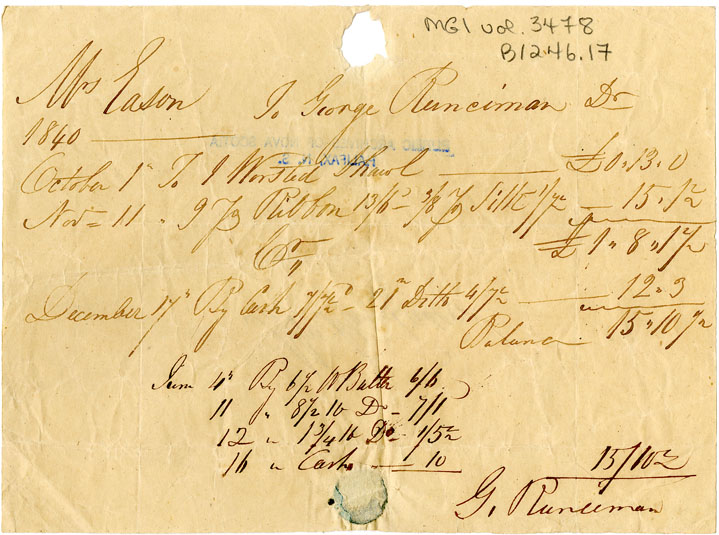 MG1 vol. 3478
B1246.17
Mrs Eason To George Runciman Dr
1840
October 1" To 1 Worsted Shawl £0"13"0
Nov 11 " 9 Yg Ribbon 13/6 3/8 Yg Silk 1/7½ 15"1½
£1"8"1½
Cr
December 17" By Cash 7/7½ 21 Ditto 4/7½ 12"3
Balance 15"10½
June 4" By 6½ lb Butter 6/6
11 " 8½ lb Do 7/1
12 " 1¾ lb Do 1/5½
16 " Cash 10
15/10½
G. Runciman